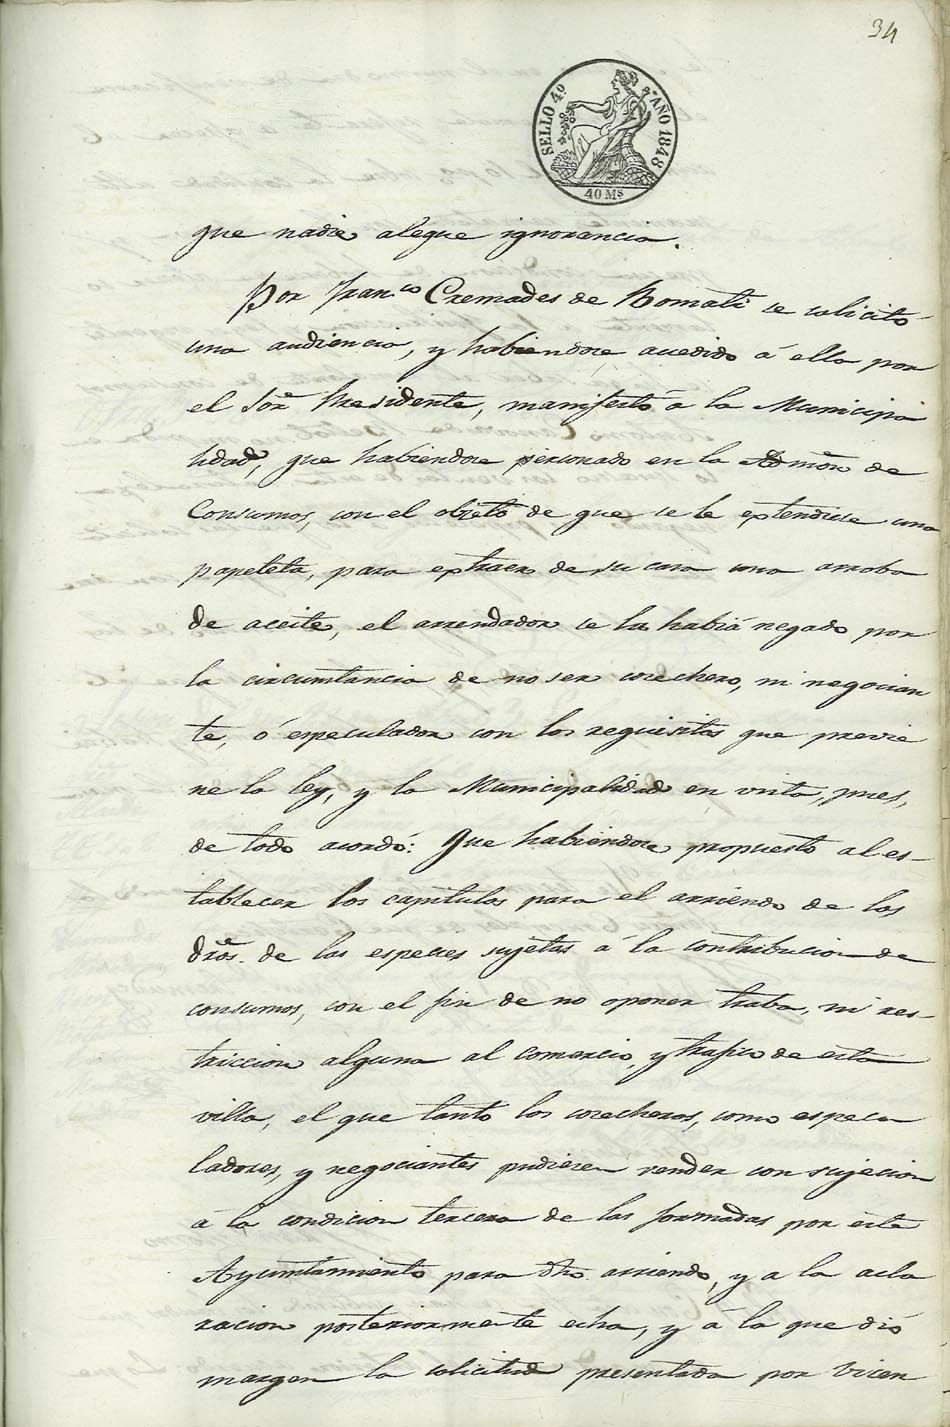 34
SELLO 4º AÑO 1848
40 Ms
que nadie alegue ignorancia.
Por Fran.co Cremades de Bomati se solicitó
una audiencia, y habiendose accedido á ella por
el Sor. Presidente, manifestó á la Municipa
lidad, que habiendose personado en la Admón de
Consumos, con el objeto de que se le extendiese una
papeleta, para extraer de su casa una arroba
de aceite, el arrendador se la habiá negado por
la circunstancia de no ser cosechero, ni negocian
te, ó especulador con los requisitos que previe
ne la ley, y la Municipalidad en vista, pues,
de todo acordó: Que habiendose propuesto al es-
tablecer los capitulos para el arriendo de los
dros. de las especies sujetas á la contribucion de
consumos, con el fin de no oponer traba, ni res-
triccion alguna al comercio, y trafico de esta
villa, el que tanto los cosecheros, como especu
ladores, y negociantes pudiesen vender con sujecion
á la condicion tercera de las formadas por este
Ayuntamiento para dho. arriendo, y a la acla
racion posteriormente echa, y á la que dió
margen la solicitud presentada por Vicen